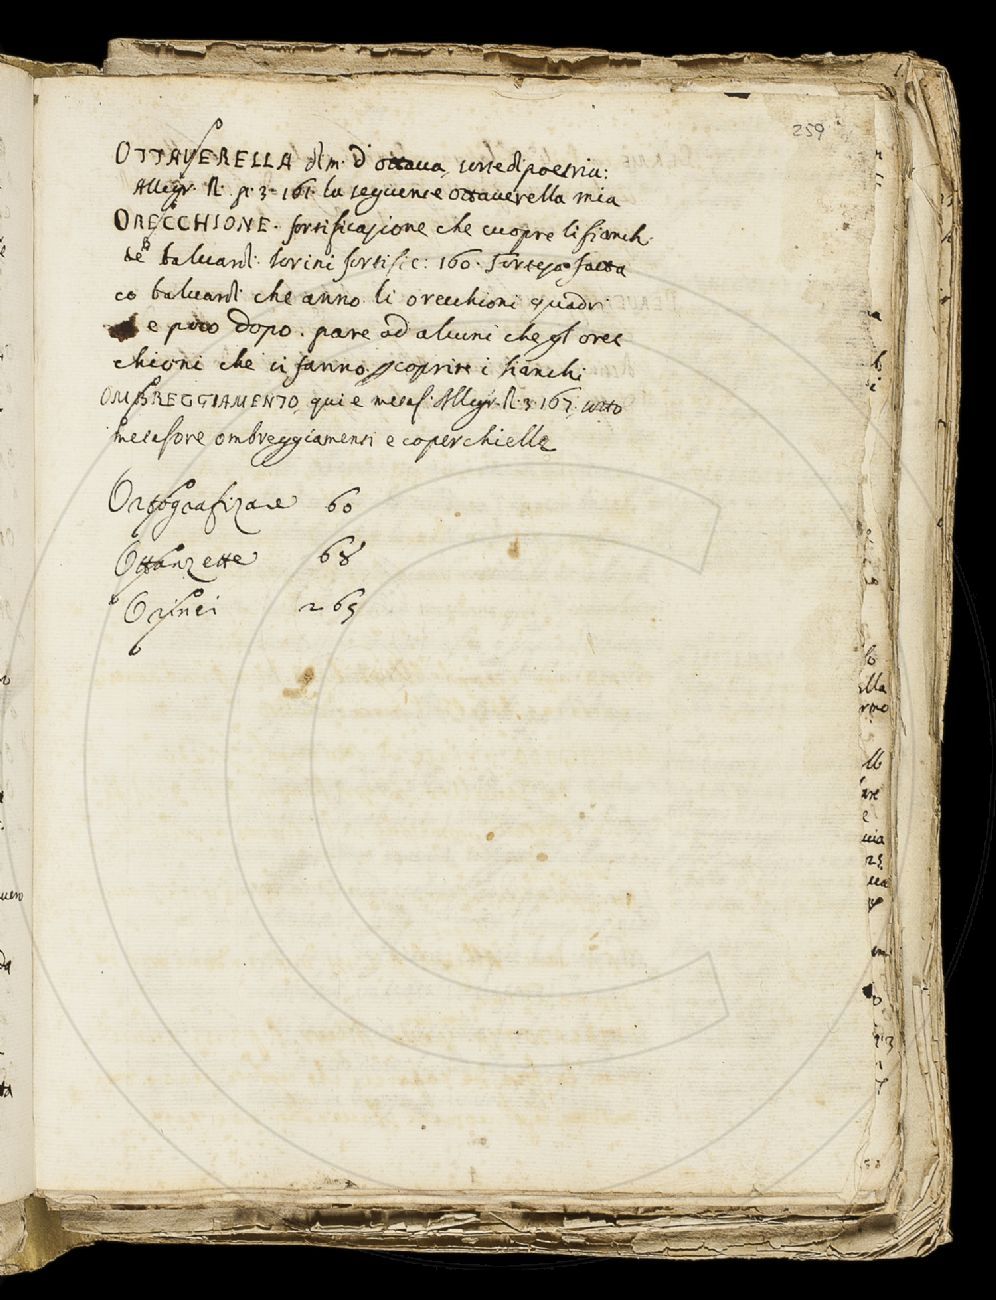 259
OTTAVERELLA dim. d'ottava, sorte di poesia:
Allegr. R. p. 3. 161. la seguente ottaverella mia
ORECCHIONE. fortificazione che cuopre li fianchi
de baluardi. lorini fortific: 160. facta
co baluardi che anno li orecchioni quadri
e poco dopo. pare ad alcuni che gl orec
chioni che ci fanno scoprire i fianchi
OMBREGGIAMENTO, qui e metaf. Allegr. R. 3. 167. sotto
metafore ombreggiamenti e coperchielle
Ortografizare 60
Ottanzette 68
Orsinci 265